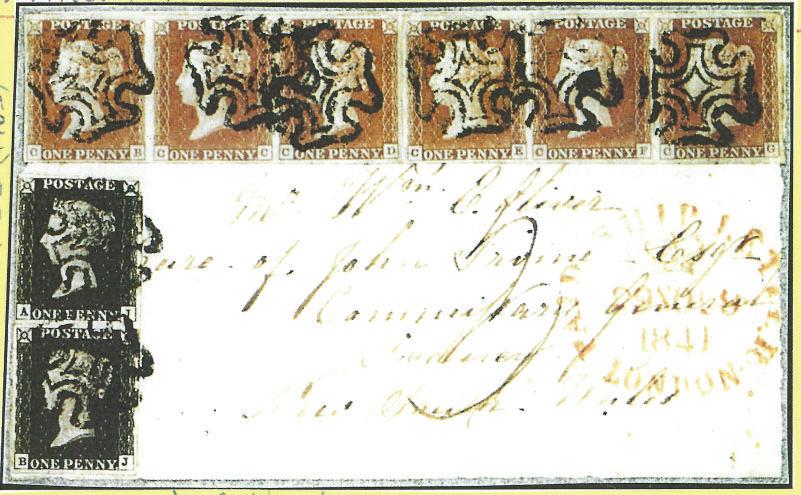 POSTAGE POSTAGE POSTAGE POSTAGE POSTAGE POSTAGE
C ONE PENNY B C ONE PENNY C C ONE PENNY D C ONE PENNY E C ONE PENNY F C ONE PENNY G
POSTAGE
A ONE PENNY I
POSTAGE
B ONE PENNY J
Mr Wm. E. Oliver
Care of John Irvine Esqr
Commissary General
Sydney
New South Wales
1841
LONDON